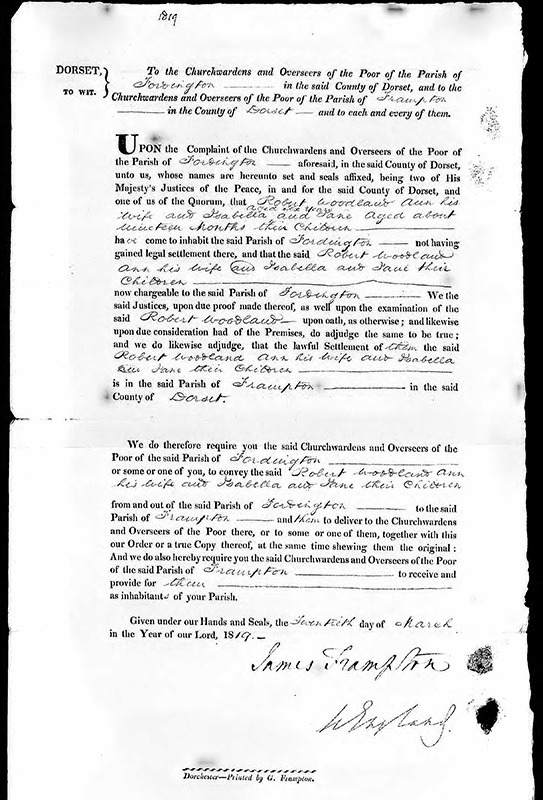 1819
DORSET, TO WIT. } To the Churchwardens and Overseers of the Poor of the Parish of
Fordington in the said County of Dorset, and to the
Churchwardens and Overseers of the Poor of the Parish of Frampton
in the County of Dorset and to each and every of them.
UPON the Complaint of the Churchwardens and Overseers of the Poor of
the Parish of Fordington aforesaid, in the said County of Dorset,
unto us, whose names are hereunto set and seals affixed, being two of His
Majesty's Justices of the Peace, in and for the said County of Dorset, and
one of us of the Quorum, that Robert Woodland Ann his
aged six Years
wife and Isabella and Jane aged about
Nineteen Months their Children
have come to inhabit the said Parish of Fordington not having
gained legal settlement there, and that the said Robert Woodland
Ann his wife and Isabella and Jane their
Children
now chargeable to the said Parish of Fordington We the
said Justices, upon due proof made thereof, as well upon the examination of the
said Robert Woodland upon oath, as otherwise; and likewise
upon due consideration had of the Premises, do adjudge the same to be true;
and we do likewise adjudge, that the lawful Settlement of them the said
Robert Woodland Ann his wife and Isabella
Jane their Children
is in the said Parish of Frampton in the said
County of Dorset.
We do therefore require you the said Churchwardens and Overseers of the
Poor of the said Parish of Fordington
or some or one of you, to convey the said Robert Woodland Ann
his wife and Isabella and Jane their Children
from and out of the said Parish of Fordington to the said
Parish of Frampton and them to deliver to the Churchwardens
and Overseers of the Poor there, or to some or one of them, together with this
our Order or a true Copy thereof, at the same time shewing them the original:
And we do also hereby require you the said Churchwardens and Overseers of the Poor
of the said Parish of Frampton to receive and
provide for them
as inhabitants of your Parish.
Given under our Hands and Seals, the Twentieth day of March
in the Year of our Lord, 1819.
James Frampton
W England
Dorchester—Printed by G. Frampton.